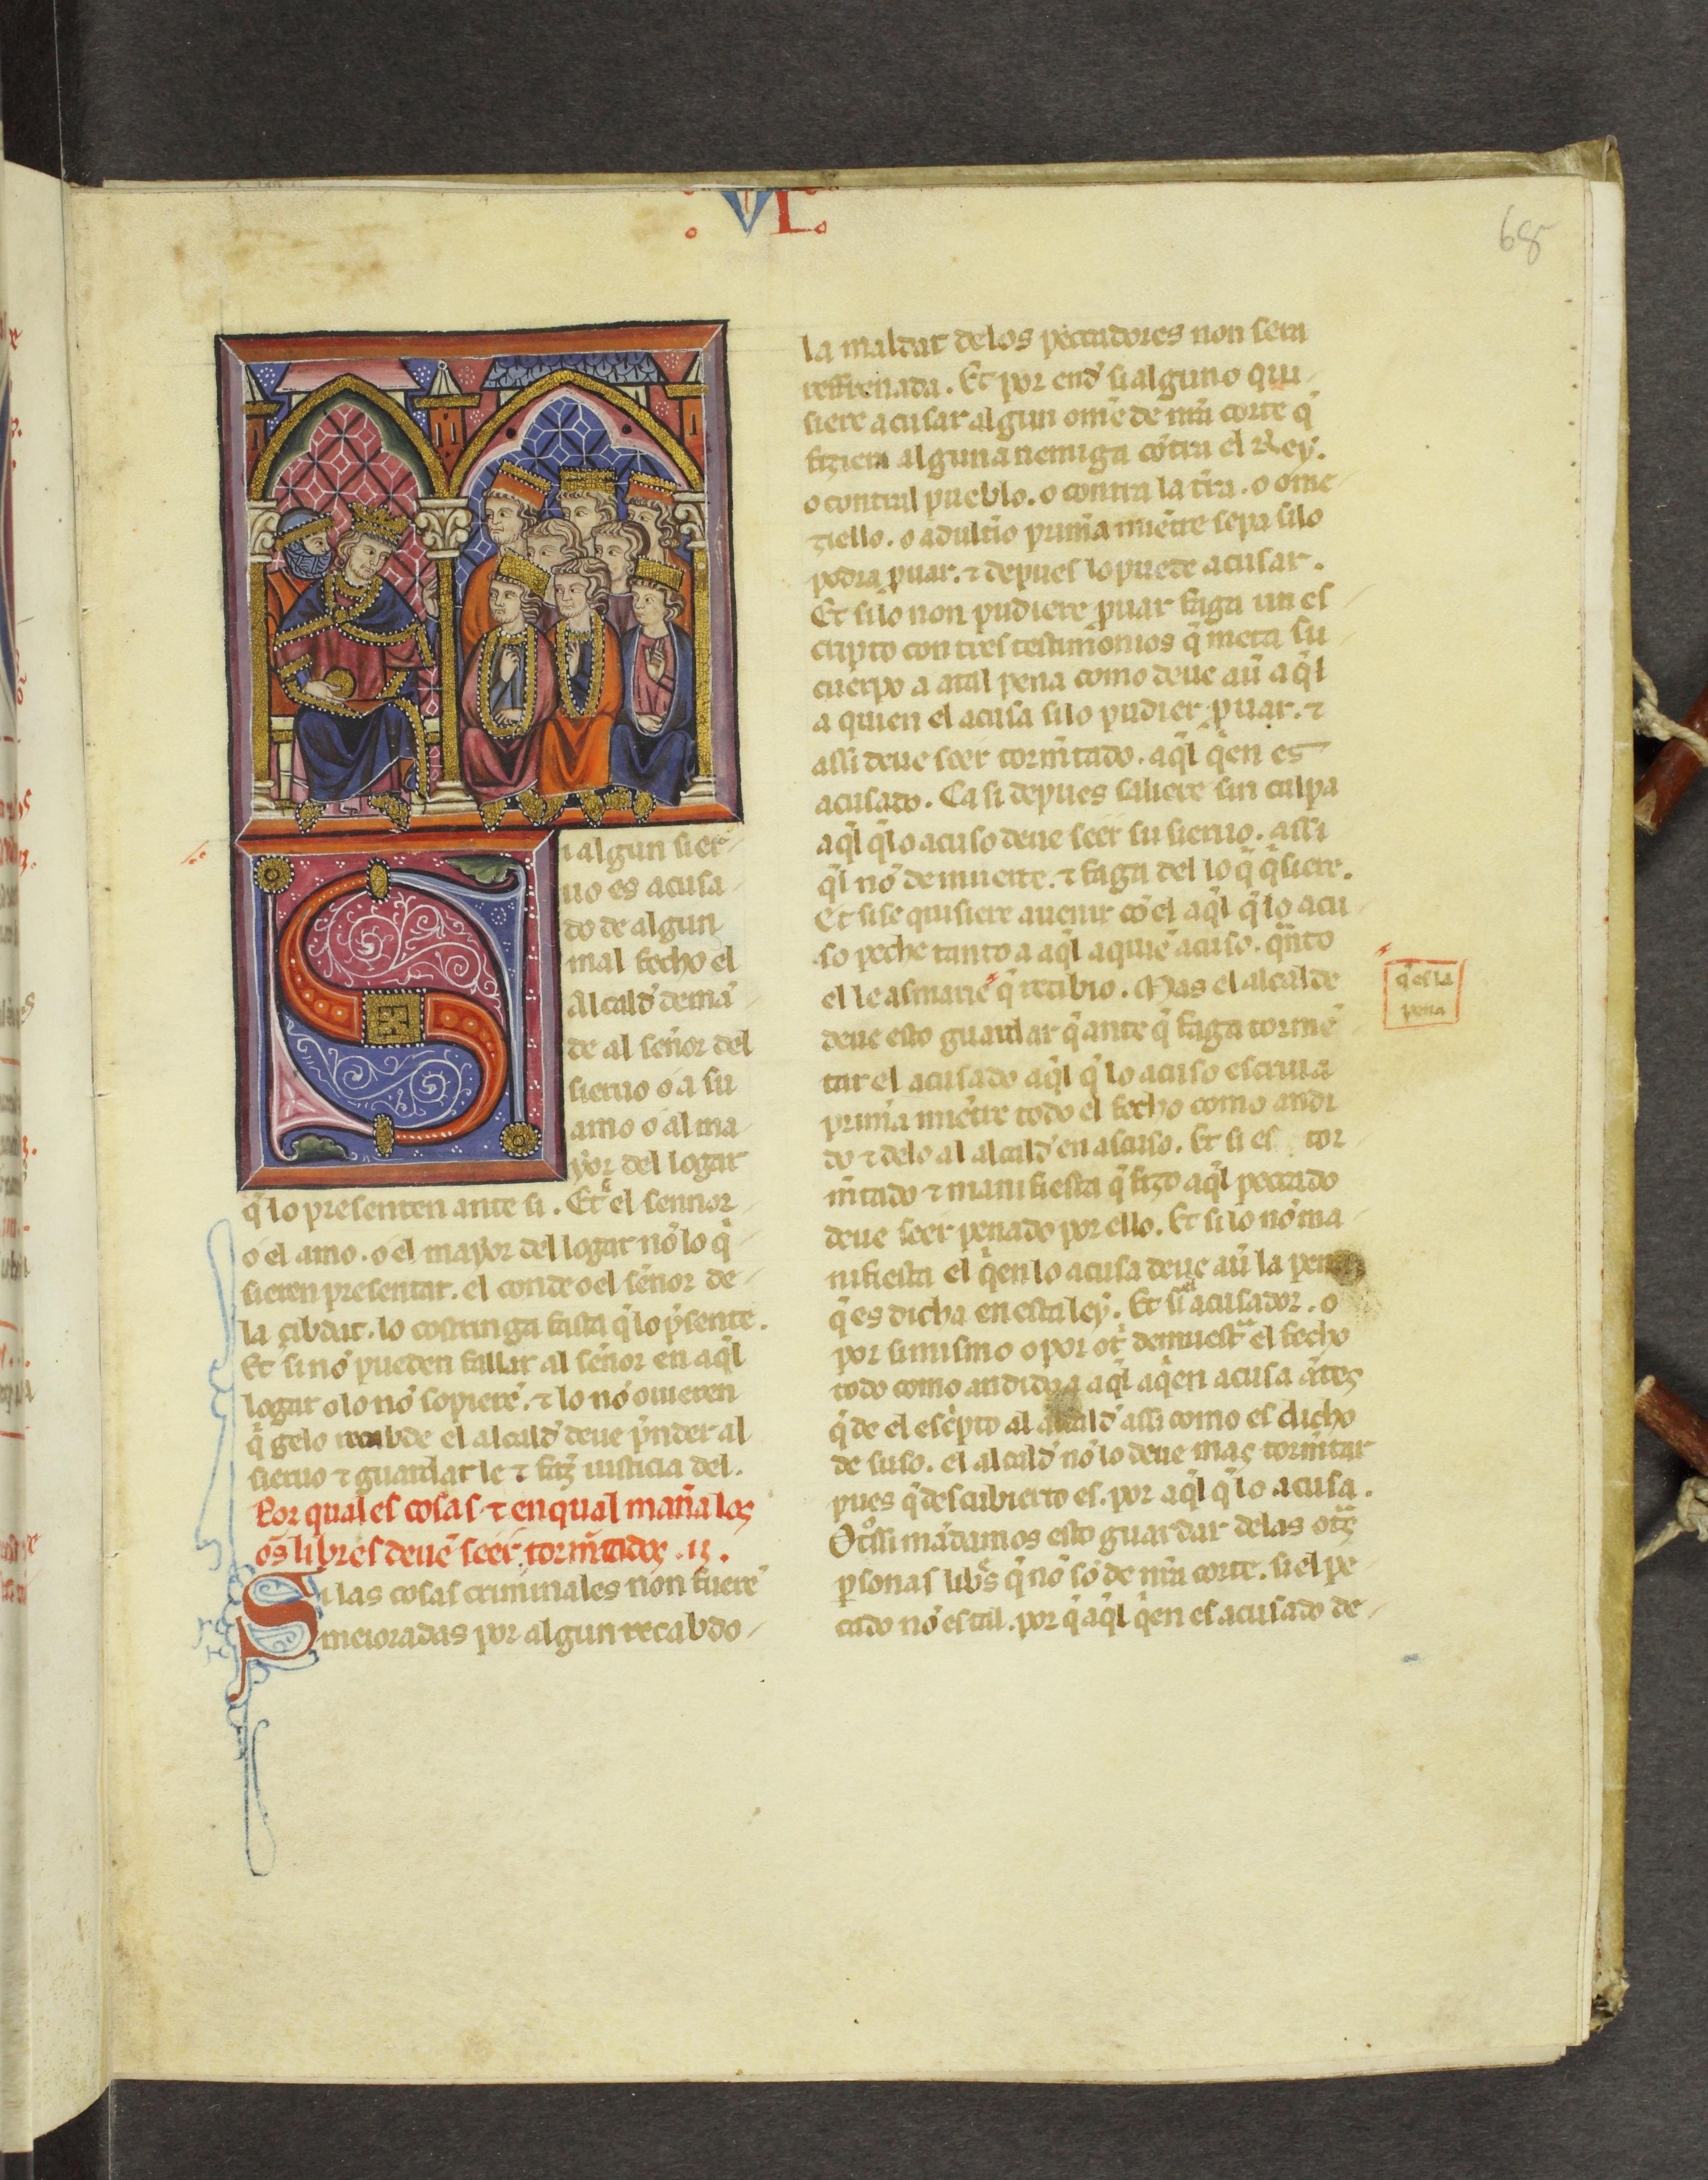 VI.
68
Si algun sier
uo es acusa
do de algun
mal fecho el
Alcald᷑ demā
de al señor del
sieruo o a su
amo o al ma
yor del logar
q̄ lo presenten ante si. Et el sennor
o el amo. o el mayor del logar nō lo q̄
sieren presentar. el conde o el señor de
la cibdat. lo costringa fasta q̄ lo p̄sente.
Et si nō pueden fallar al señor en aq̄l
logar o lo nō sopierē. ⁊ lo nō ouieren
q̄ gelo recabde el alcald᷑ deue p̄nder al
sieruo ⁊ guardar le ⁊ faz᷑ iusticia del.
Por quales cosas ⁊ en qual maña los
oēs libres deuē seer torm̄tados .ii.
Si las cosas criminales non fuerē
meioradas por algun recabdo
la maldat delos peccadores non sera
reffrenada. Et por end᷑ si alguno qui
siere acusar algun ome de nr̄a corte q̄
fiziera alguna nemiga cōtra el Rey.
o contral pueblo. o contra la t̄ra. o ome
ziello. o adult̄io prim̄a miētre sepa si lo
podra ꝓuar. ⁊ depues lo puede acusar.
Et si lo non pudiere ꝓuar faga un es
cripto con tres testimonios q̄ meta su
cuerpo a atal pena como deue auꝰ aq̄l
a quien el acusa si lo pudier ꝓuar. ⁊
assi deue seer torm̄tado. aq̄l q̄en es
acusado. Ca si depues saliere sin culpa
aq̄l q̄ lo acuso deue seer su sieruo. assi
q̄l nō de muerte. ⁊ faga del lo q̄ q̄siere.
Et si se quisiere auenir cō el aq̄l q̄ lo acu
so peche tanto a aq̄l a quiē acuso. q̄nto
el le asmarē q̄ recibio. Mas el alcalde
q̄ es la
pena
deue esto guardar q̄ ante q̄ faga tormē
tar el acusado aq̄l q̄ lo acuso escriua
prim̄a miētre todo el fecho como andi
do ⁊ delo al alcald᷑ en ascuso. Et si es tor
m̄tado ⁊ manifiesta q̄ fizo aq̄l peccado
deue seer penado por ello. Et si lo nō ma
nifiesta el q̄en lo acusa deue auꝰ la pena
q̄ es dicha en esta ley. Et si el acusador. o
por simismo o por ot̄ demuest̄ el fecho
todo como andido a aq̄l aq̄en acusa ātes
q̄ de el esc̄pto al alcald᷑ assi como es dicho
de suso. el alcald᷑ nō lo deue mas torm̄tar
pues q̄ descubierto es. por aq̄l q̄ lo acusa.
Ot̄ssi mādamos esto guardar delas ot̄s
ꝑsonas lib̄s q̄ nō sō de nr̄a corte. si el pe
cado nō es tal. por q̄ aq̄l q̄en es acusado de